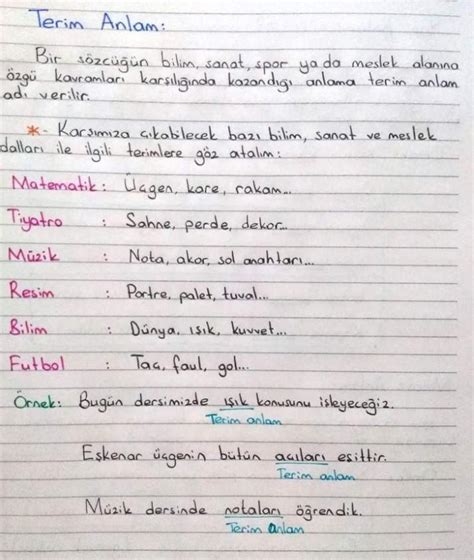 Terim Anlam:
Bir sözcüğün bilim, sanat, spor ya da meslek alanına
özgü kavramları karşılığında kazandığı anlama terim anlam
adı verilir.
*- Karşımıza çıkabilecek bazı bilim, sanat ve meslek
dalları ile ilgili terimlere göz atalım:
Matematik: Üçgen, kare, rakam...
Tiyatro : Sahne, perde, dekor...
Müzik : Nota, akor, sol anahtarı...
Resim : Portre, palet, tuval...
Bilim : Dünya, ışık, kuvvet...
Futbol : Taç, faul, gol...
Örnek: Bugün dersimizde ışık konusunu işleyeceğiz.
Terim anlam
Eşkenar üçgenin bütün açıları eşittir.
Terim anlam
Müzik dersinde notaları öğrendik.
Terim anlam